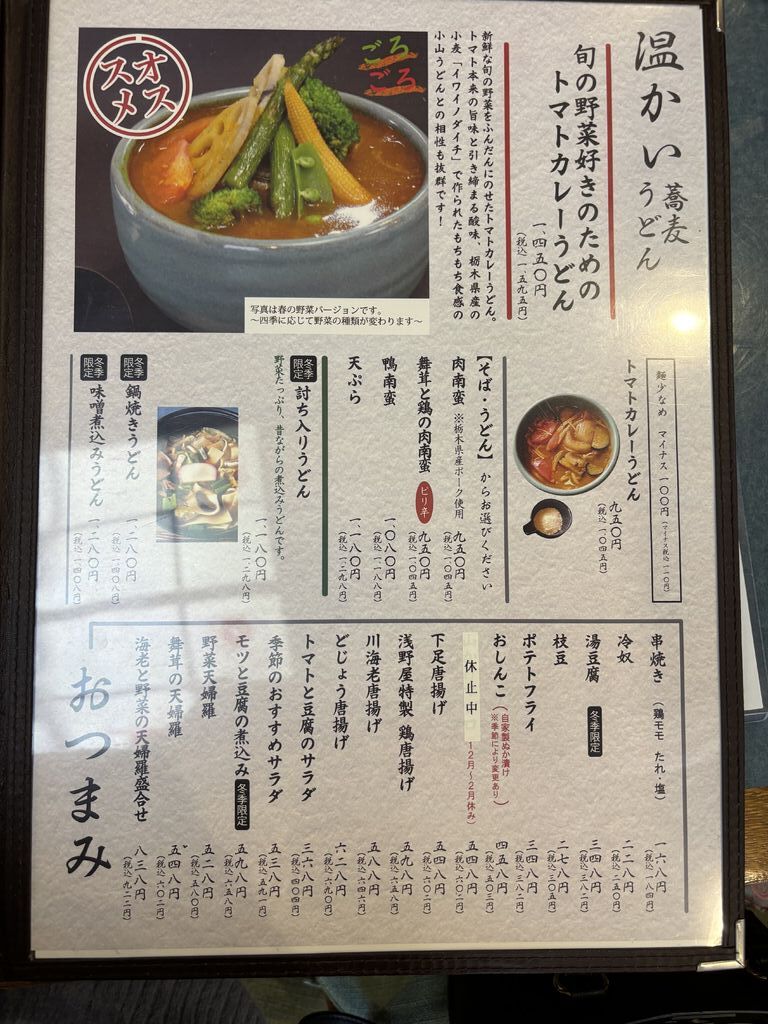 温かい
蕎麦
うどん
旬の野菜好きのための
トマトカレーうどん
一、四五〇円
(税込 一、五九五円)
新鮮な旬の野菜をふんだんにのせたトマトカレーうどん。
トマト本来の旨味と引き締まる酸味、栃木県産の
小麦「イワイノダイチ」で作られたもちもち食感の
小山うどんとの相性も抜群です!
ごろ
ごろ
オススメ
写真は春の野菜バージョンです。
〜四季に応じて野菜の種類が変わります〜
麺少なめ マイナス一〇〇円(マイナス税込 一一〇円)
トマトカレーうどん
九五〇円
(税込 一、〇四五円)
【そば・うどん】からお選びください
肉南蛮 ※栃木県産ポーク使用 九五〇円
(税込 一、〇四五円)
舞茸と鶏の肉南蛮 ピリ辛 九五〇円
(税込 一、〇四五円)
鴨南蛮 一、〇八〇円
(税込 一、一八八円)
天ぷら 一、一八〇円
(税込 一、二九八円)
冬季限定 討ち入りうどん
野菜たっぷり、昔ながらの煮込みうどんです。
一、一八〇円
(税込 一、二九八円)
冬季限定 鍋焼きうどん 一、二八〇円
(税込 一、四〇八円)
冬季限定 味噌煮込みうどん 一、二八〇円
(税込 一、四〇八円)
おつまみ
串焼き (鶏モモ たれ・塩) 一六八円
(税込 一八四円)
冷奴 二二八円
(税込 二五〇円)
湯豆腐 冬季限定 三四八円
(税込 三八二円)
枝豆 二七八円
(税込 三〇五円)
ポテトフライ 三四八円
(税込 三八二円)
おしんこ (自家製ぬか漬け ※季節により変更あり) 四五八円
(税込 五〇三円)
休止中 12月〜2月休み) 五四八円
(税込 六〇二円)
下足唐揚げ 五四八円
(税込 六〇二円)
浅野屋特製 鶏唐揚げ 五九八円
(税込 六五八円)
川海老唐揚げ 五八八円
どじょう唐揚げ 六二八円
(税込 六九〇円)
トマトと豆腐のサラダ 三六八円
(税込 四〇四円)
季節のおすすめサラダ 五三八円
(税込 五九一円)
モツと豆腐の煮込み 冬季限定 五九八円
(税込 六五八円)
野菜天婦羅 五二八円
(税込 五八〇円)
舞茸の天婦羅 五四八円
(税込 六〇二円)
海老と野菜の天婦羅盛合せ 八三八円
(税込 九二二円)